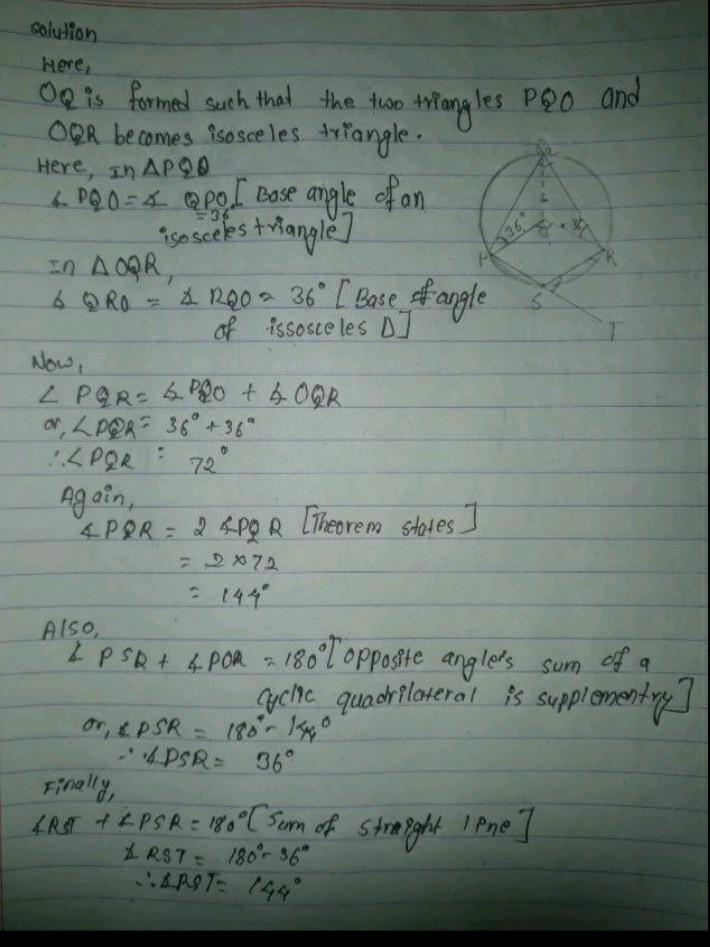 Solution
Here,
OQ is formed such that the two triangles PQO and
OQR becomes isosceles triangle.
Here, In ΔPQO
∡ PQO = ∡ QPO [ Base angle of an
= 36
isosceles triangle]
In Δ OQR,
∡ QRO = ∡ RQO = 36° [ Base of angle
of issosceles Δ]
Now,
∠ PQR = ∡ PQO + ∡ OQR
or, ∠PQR = 36° + 36°
∴ ∠PQR = 72°
Again,
∡PQR = 2 ∡PQR [Theorem states]
= 2×72
= 144°
Also,
∡ PSR + ∡ POR = 180° [ Opposite angle's sum of a
cyclic quadrilateral is supplementry]
or, ∡ PSR = 180° - 144°
∴ ∡PSR = 36°
Finally,
∡RST + ∡PSR = 180° [ Sum of straight line]
∡ RST = 180° - 36°
∴ ∡RST = 144°
36°
36
P
R
S
T